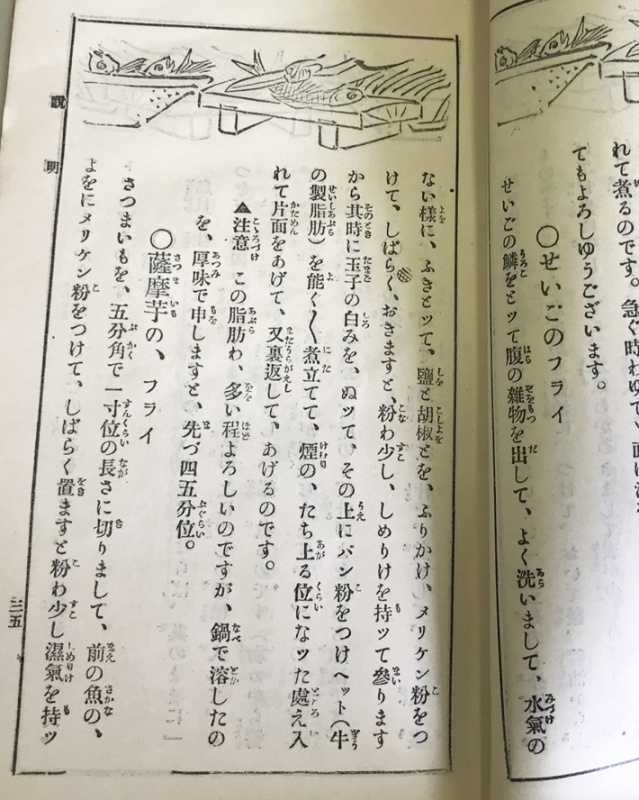 れて煮るのです。急ぐ時わ
てもよろしゆうございます。
〇せいごのフライ
せいごの鱗をとッて腹の雜物を出して、よく洗いまして、水氣の
ない樣に、ふきとッて、鹽と胡椒とを、ふりかけ、メリケン粉をつ
けて、しばらく、おきますと、粉わ少し、しめりけを持ッて參ります
から其時に玉子の白みを、ぬッて、その上にパン粉をつけヘット(牛
の製脂肪)を能く〱煮立てて、煙の、たち上る位になッた處え入
れて片面をあげて、又裏返して、あげるのです。
▲注意 この脂肪わ、多い程よろしいのですが、鍋で溶したの
を、厚味で申しますと、先づ四五分位。
〇薩摩芋の、フライ
さつまいもを、五分角で一寸位の長さに切りまして、前の魚の、
よをにメリケン粉をつけて、しばらく置ますと粉わ少し濕氣を持ッ
說明
三五